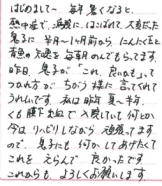 はじめまして。毎年暑くなると、
熱中症で、病院にはこばれて、大変だった
息子に 半年〜1ヶ月前から にんにくと
青魚の知恵を毎朝のんでもらってます
昨日、息子が「これ、良いかも」って
つかれ方が ちがう様に 言ってくれて
うれしいです。私は昨年 夏〜半年、
くも膜下出血で入院していて 何とか
今は リハビリしながら 頑張ってます
ので、息子にも 何かしてあげたくて
これを えらんで 良かったです
これからも よろしくお願いします